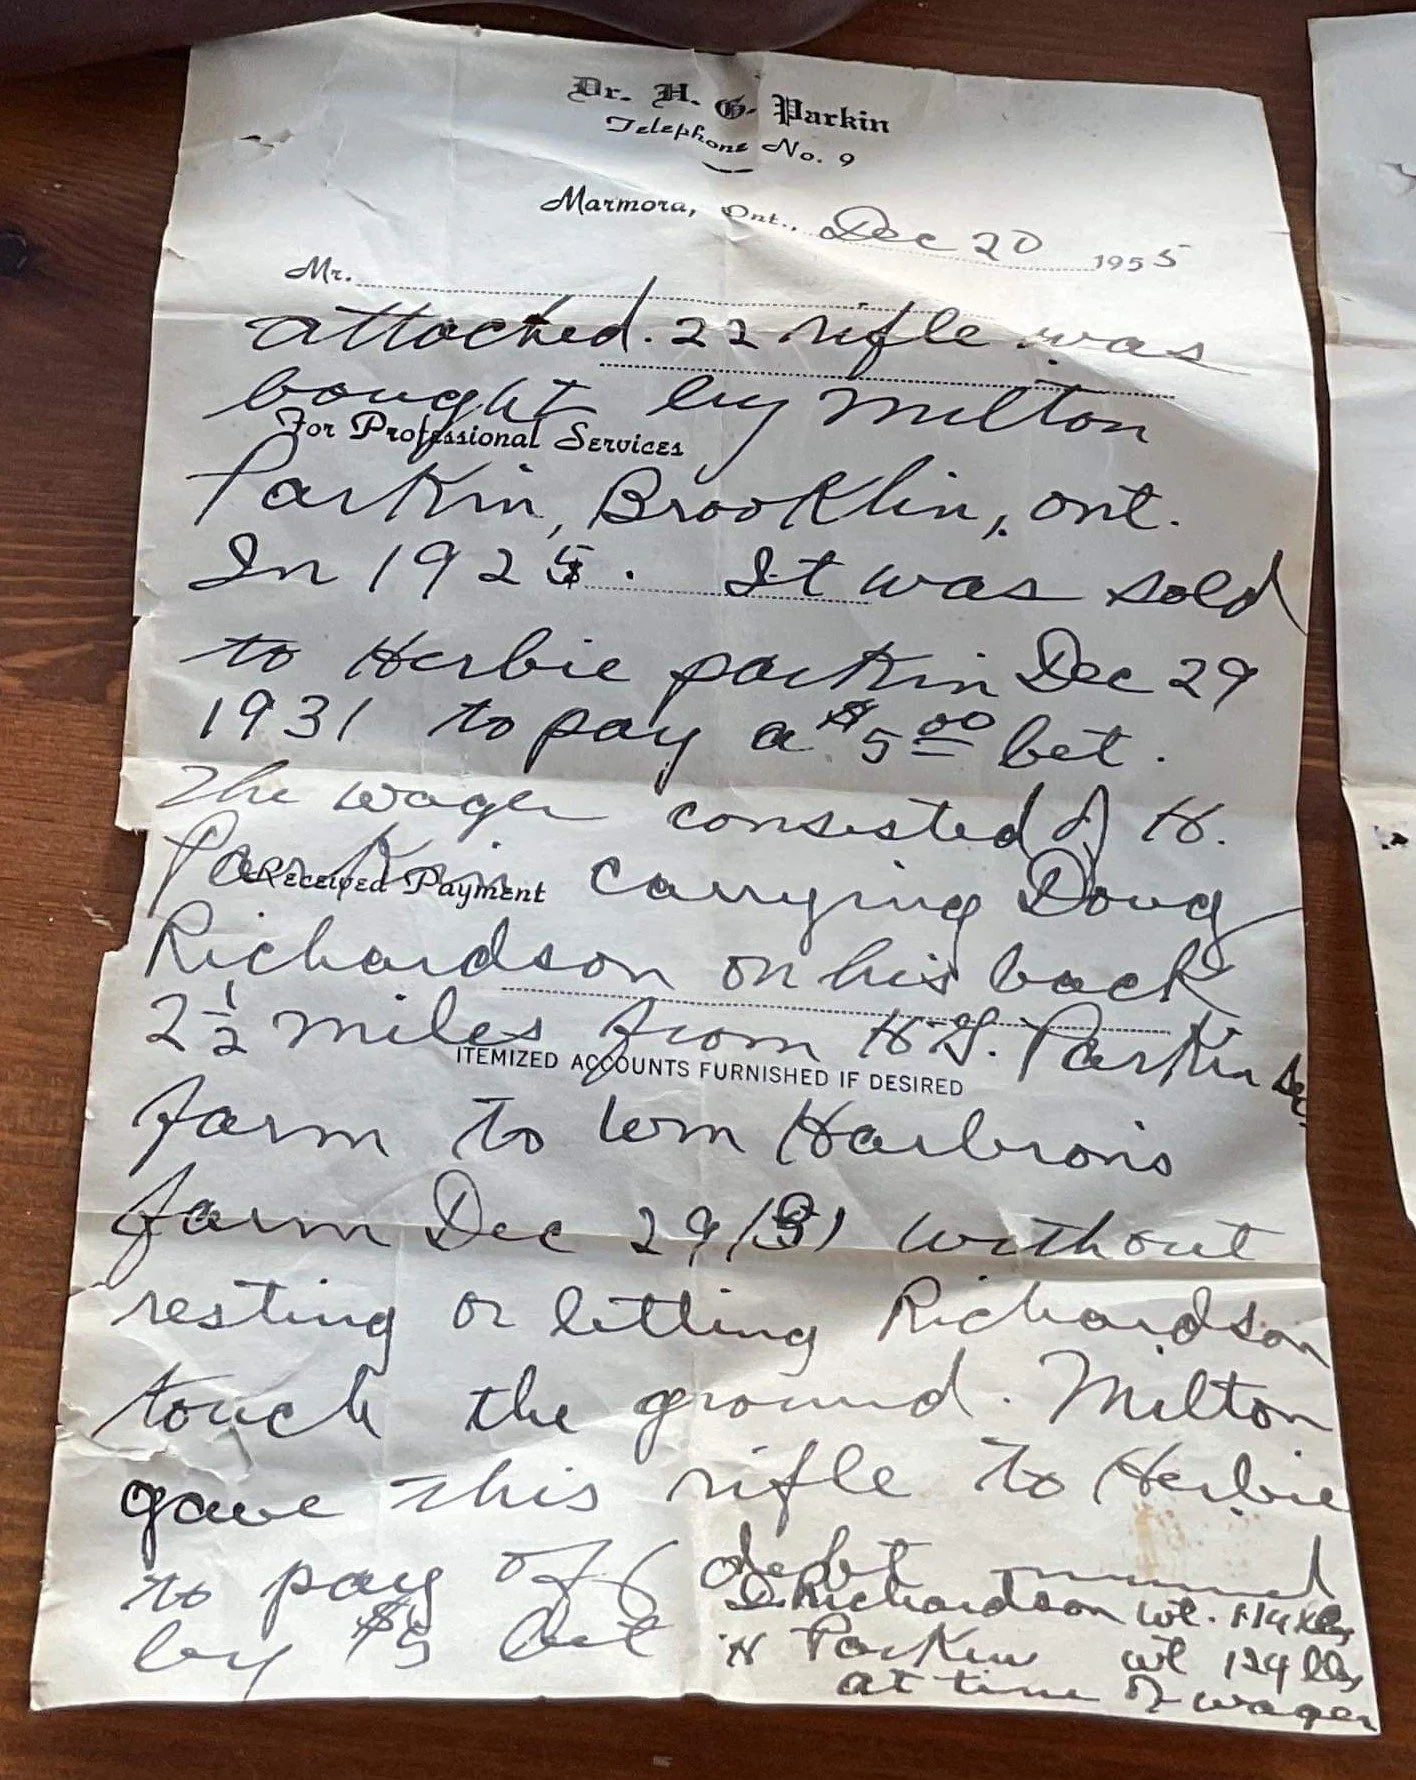 Dr. H. G. Parkin
Telephone No. 9
Marmora, Ont., Dec 20 1955
Mr.
attached .22 rifle was
bought by Milton
For Professional Services
Parkin, Brooklin, Ont.
In 1925. It was sold
to Herbie parkin Dec 29
1931 to pay a $5.00 bet.
The wager consisted of H.
Parkin carrying Doug
Received Payment
Richardson on his back
2 1/2 miles from H.G. Parkin Sr
ITEMIZED ACCOUNTS FURNISHED IF DESIRED
farm to Wm Harbron's
farm Dec 29/31 without
resting or letting Richardson
touch the ground. Milton
gave this rifle to Herbie
to pay off debt
by $5 bet
D. Richardson wt. 114 lbs
H Parkin wt 129 lbs
at time of wager